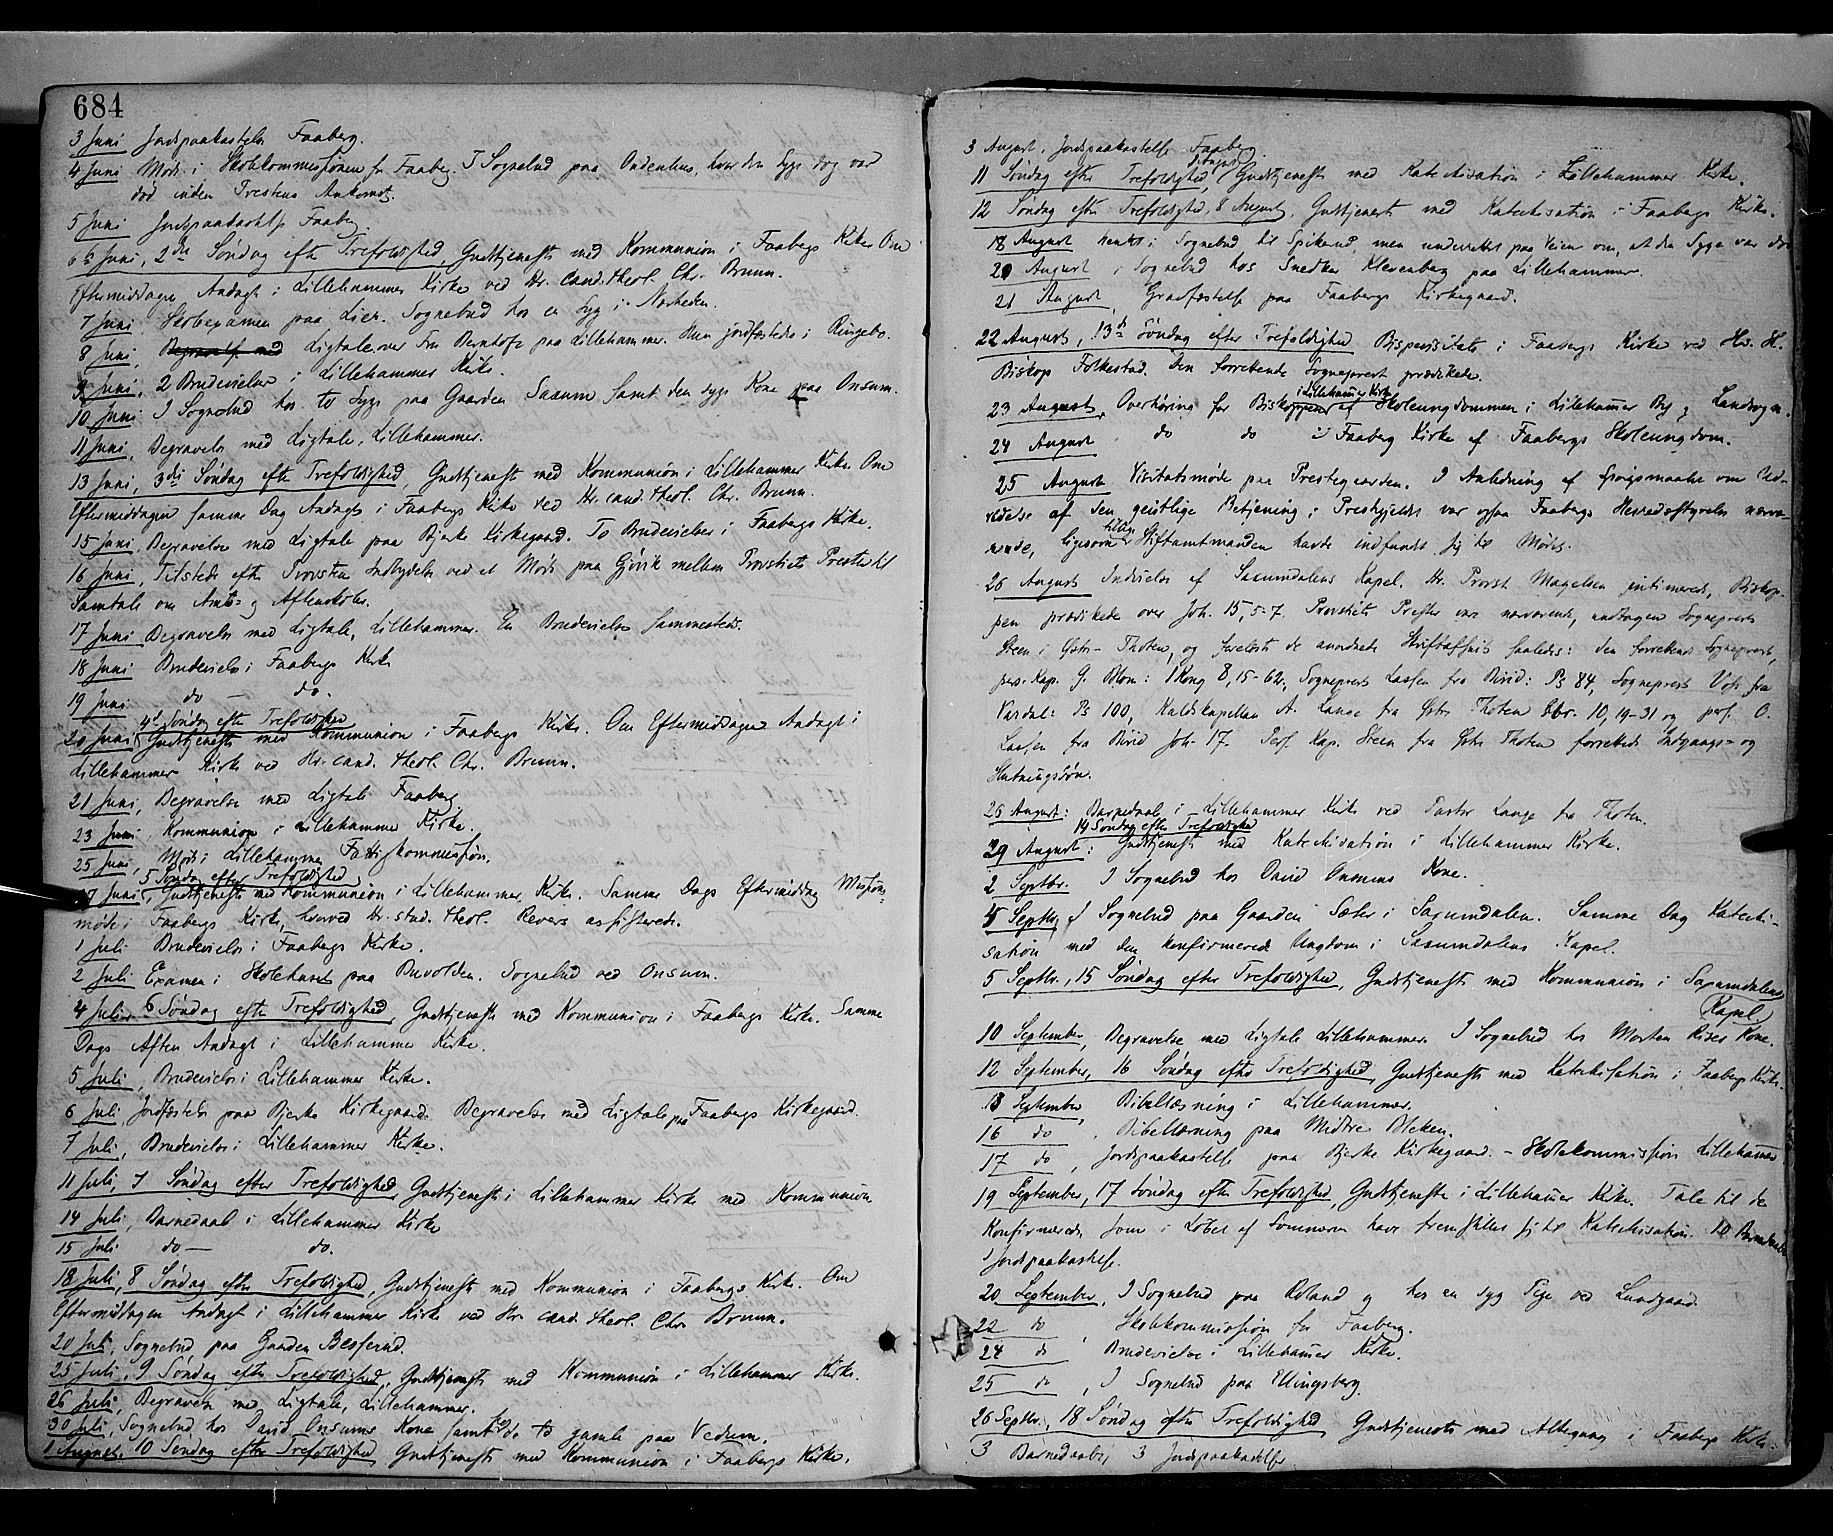 684
3 Juni Jordspaakastelse Faaberg.
4 Juni Møde i Skolekommissionen for Faaberg. I Sognebud paa Ondenhus, hvor den Syge dog var
død inden Prestens Ankomst.
5 Juni Jordspaakastelse Faaberg
6te Juni, 2den Søndag efter Trefoldighed, Gudstjeneste med Kommunion i Faabergs Kirke. Om
Eftermiddagen Andagt i Lillehammer Kirke ved Hr. Cand. theol. Chr. Bruun.
7 Juni Skoleexamen paa Lien. Sognebud hos en Syg i Nærheden.
8 Juni, Begravelse med Ligtale over Fru Berntoft paa Lillehammer. Hun jordfæstedes i Ringebo.
9 Juni, 2 Brudevielser i Lillehammer Kirke.
10 Juni I Sognebud hos to Syge paa Gaarden Saxum samt den syge Kone paa Onsum.
11 Juni, Begravelse med Ligtale, Lillehammer.
13 Juni, 3die Søndag efter Trefoldighed, Gudstjeneste med Kommunion i Lillehammer Kirke. Om
Eftermiddagen samme Dag Andagt i Faabergs Kirke ved Hr. cand. theol. Chr. Bruun.
15 Juni Begravelse med Ligtale paa Bjerke Kirkegaard. To Brudevielser i Faabergs Kirke.
16 Juni, Tilstede efter Provstens Indbydelse ved et Møde paa Gjøvik mellem Provstiets Prester til
Samtale om Amts- og Aftenskoler.
17 Juni Begravelse med Ligtale, Lillehammer. En Brudevielse sammesteds.
18 Juni Brudevielse i Faabergs Kirke
19 Juni do — do.
4de Søndag efter Trefoldighed
20 Juni Gudstjeneste med Kommunion i Faabergs Kirke. Om Eftermiddagen Andagt i
Lillehammer Kirke ved Hr. cand. theol. Chr. Bruun.
21 Juni, Begravelse med Ligtale Faaberg.
23 Juni, Kommunion i Lillehammer Kirke.
25 Juni, Møde i Lillehammer Fattigkommission.
5 Søndag efter Trefoldighed
27 Juni, Gudstjeneste med Kommunion i Lillehammer Kirke. Samme Dags Eftermiddag Missions-
møde i Faabergs Kirke, hvorved Hr. stud. theol. Revers assisterede.
1 Juli Brudevielse i Faabergs Kirke.
2 Juli Examen i Skolehuset paa Buvolden. Sognebud ved Onsum.
4 Juli 6 Søndag efter Trefoldighed, Gudstjeneste med Kommunion i Faabergs Kirke. Samme
Dags Aften Andagt i Lillehammer Kirke.
5 Juli, Brudevielse i Lillehammer Kirke.
6 Juli Jordfæstelse paa Bjerke Kirkegaard. Begravelse med Ligtale paa Faabergs Kirkegaard.
7 Juli, Brudevielse i Lillehammer Kirke.
11 Juli, 7 Søndag efter Trefoldighed Gudstjeneste i Lillehammer Kirke med Kommunion
14 Juli, Barnedaab i Lillehammer Kirke
15 Juli do — do.
18 Juli, 8 Søndag efter Trefoldighed, Gudstjeneste med Kommunion i Faabergs Kirke. Om
Eftermiddagen Andagt i Lillehammer Kirke ved Hr. cand. theol. Chr. Bruun.
20 Juli, Sognebud paa Gaarden Besserud.
25 Juli, 9 Søndag efter Trefoldighed, Gudstjeneste med Kommunion i Lillehammer Kirke.
26 Juli, Begravelse med Ligtale, Lillehammer.
30 Juli, Sognebud hos David Onsums Kone samt hos to gamle paa Vedum.
1 August, 10 Søndag efter Trefoldighed Gudstjeneste med Kommunion i Faabergs Kirke.
3 August, Jordspaakastelse Faaberg
8 August
11 Søndag efter Trefoldighed, Gudstjeneste med Katechisation i Lillehammer Kirke.
12 Søndag efter Trefoldighed, 8 August, Gudstjeneste med Katechisation i Faabergs Kirke.
18 August hentet i Sognebud til Spikerud, men underrettet paa Veien om, at den Syge var død
20 August i Sognebud hos Snedker Klevenberg paa Lillehammer.
21 August, Gravfæstelse paa Faabergs Kirkegaard.
22 August, 13de Søndag efter Trefoldighed Bispevisitats i Faabergs Kirke ved Hs. H.
Biskop Folkestad. Den forrettende Sogneprest prædikede.
i Lillehammer Kirke
23 August, Overhøring for Biskoppen af Skoleungdommen i Lillehammer By og Landsogn.
24 August do do i Faaberg Kirke af Faabergs Skoleungdom.
25 August Visitatsmøde paa Prestegaarden. I Anledning af Spørgsmaalet om Ud-
videlse af den geistlige Betjening i Prestegjeldet var ogsaa Faabergs Herredsstyrelse nærvæ-
rende, ligesom tillige Stiftamtmanden havde indfundet sig til Mødet.
26 August Indvielse af Saxumdalens Kapel. Hr. Provst Magelsen intimerede, Biskop-
pen prædikede over Joh. 15, 5-7. Provstiets Prester vare nærværende, undtagen Sogneprest
Steen i Østre-Thoten, og forelæste de anordnede Skriftafsnit saaledes: den forrettende Sogneprest,
pers. Kap. G. Blom: 1 Kong 8, 15-62, Sogneprest Lassen fra Birid: Ps 84, Sogneprest Vogt fra
Vardal: Ps 100, Kaldskapellan A. Lange fra Østre Thoten Ebr. 10, 19-31 og pers. O.
Lassen fra Birid Joh. 17. Pers. Kap. Steen fra Østre Thoten forrettede Indgangs- og
Slutningsbøn.
26 August: Barnedaab i Lillehammer Kirke ved Pastor Lange fra Thoten.
14 Søndag efter Trefoldighed
29 August: Gudstjeneste med Katechisation i Lillehammer Kirke.
2 Septbr. I Sognebud hos David Onsums Kone.
4 Septbr I Sognebud paa Gaarden Sæter i Saxumdalen. Samme Dag Katechi-
sation med den konfirmerede Ungdom i Saxumdalens Kapel.
5 Septbr., 15 Søndag efter Trefoldighed, Gudstjeneste med Kommunion i Saxumdalens
Kapel
10 September, Begravelse med Ligtale Lillehammer. I Sognebud hos Morten Rises Kone.
12 September, 16 Søndag efter Trefoldighed Gudstjeneste med Katechisation i Faabergs Kirke.
13 September, Bibellæsning i Lillehammer.
16 do, Bibellæsning paa Midtre Bleken.
17 do, Jordspaakastelse paa Bjerke Kirkegaard. – Skolekommission Lillehammer
19 September, 17 Søndag efter Trefoldighed, Gudstjeneste i Lillehammer Kirke. Tale til de
Konfirmerede, som i Løbet af Sommeren have fremstillet sig til Katechisation. 10 Barnedaab
1 Jordspaakastelse.
20 September, I Sognebud paa Roland og hos en syg Pige ved Lundgaard.
22 do, Skolekommission for Faaberg.
24 do Brudevielse i Lillehammer Kirke.
25 do, I Sognebud paa Ellingsberg.
26 Septbr., 18 Søndag efter Trefoldighed Gudstjeneste med Altergang i Faabergs Kirke.
3 Barnedaab, 3 Jordspaakastelser